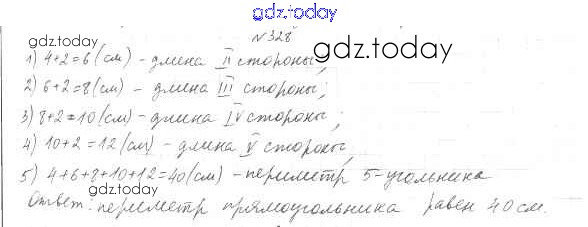 gdz.today
№328
gdz.today
gdz.today
1) 4+2=6(см) - длина II стороны;
2) 6+2=8(см) - длина III стороны;
3) 8+2=10(см) - длина IV стороны;
4) 10+2=12(см) - длина V стороны;
5) 4+6+8+10+12=40(см) - периметр 5-угольника
gdz.today
Ответ: периметр прямоугольника равен 40 см.